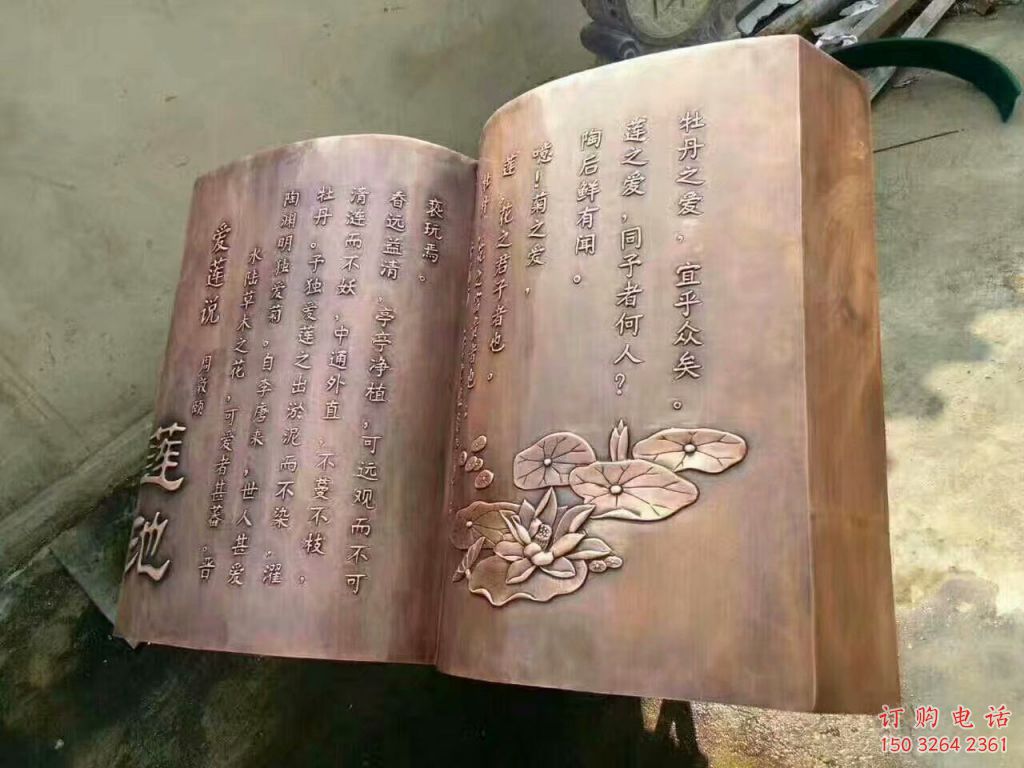 莲池
爱莲说 周敦颐
水陆草木之花,可爱者甚蕃。晋
陶渊明独爱菊。自李唐来,世人甚爱
牡丹。予独爱莲之出淤泥而不染,濯
清涟而不妖,中通外直,不蔓不枝,
香远益清,亭亭净植,可远观而不可
亵玩焉。
莲,花之君子者也,
噫!菊之爱,
陶后鲜有闻。
莲之爱,同予者何人?
牡丹之爱,宜乎众矣。
订购电话
150 3264 2361